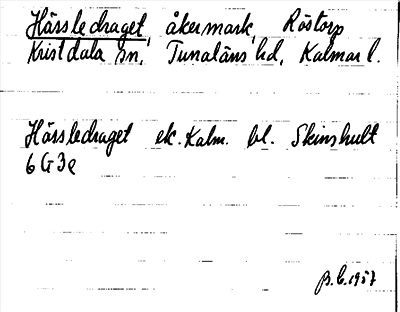 Hässledraget, åkermark, Röstorp
Kristdala sn, Tunaläns hd, Kalmar l.
Hässledraget ek. Kalm. bl. Skinshult
6G3e
B.C. 1957